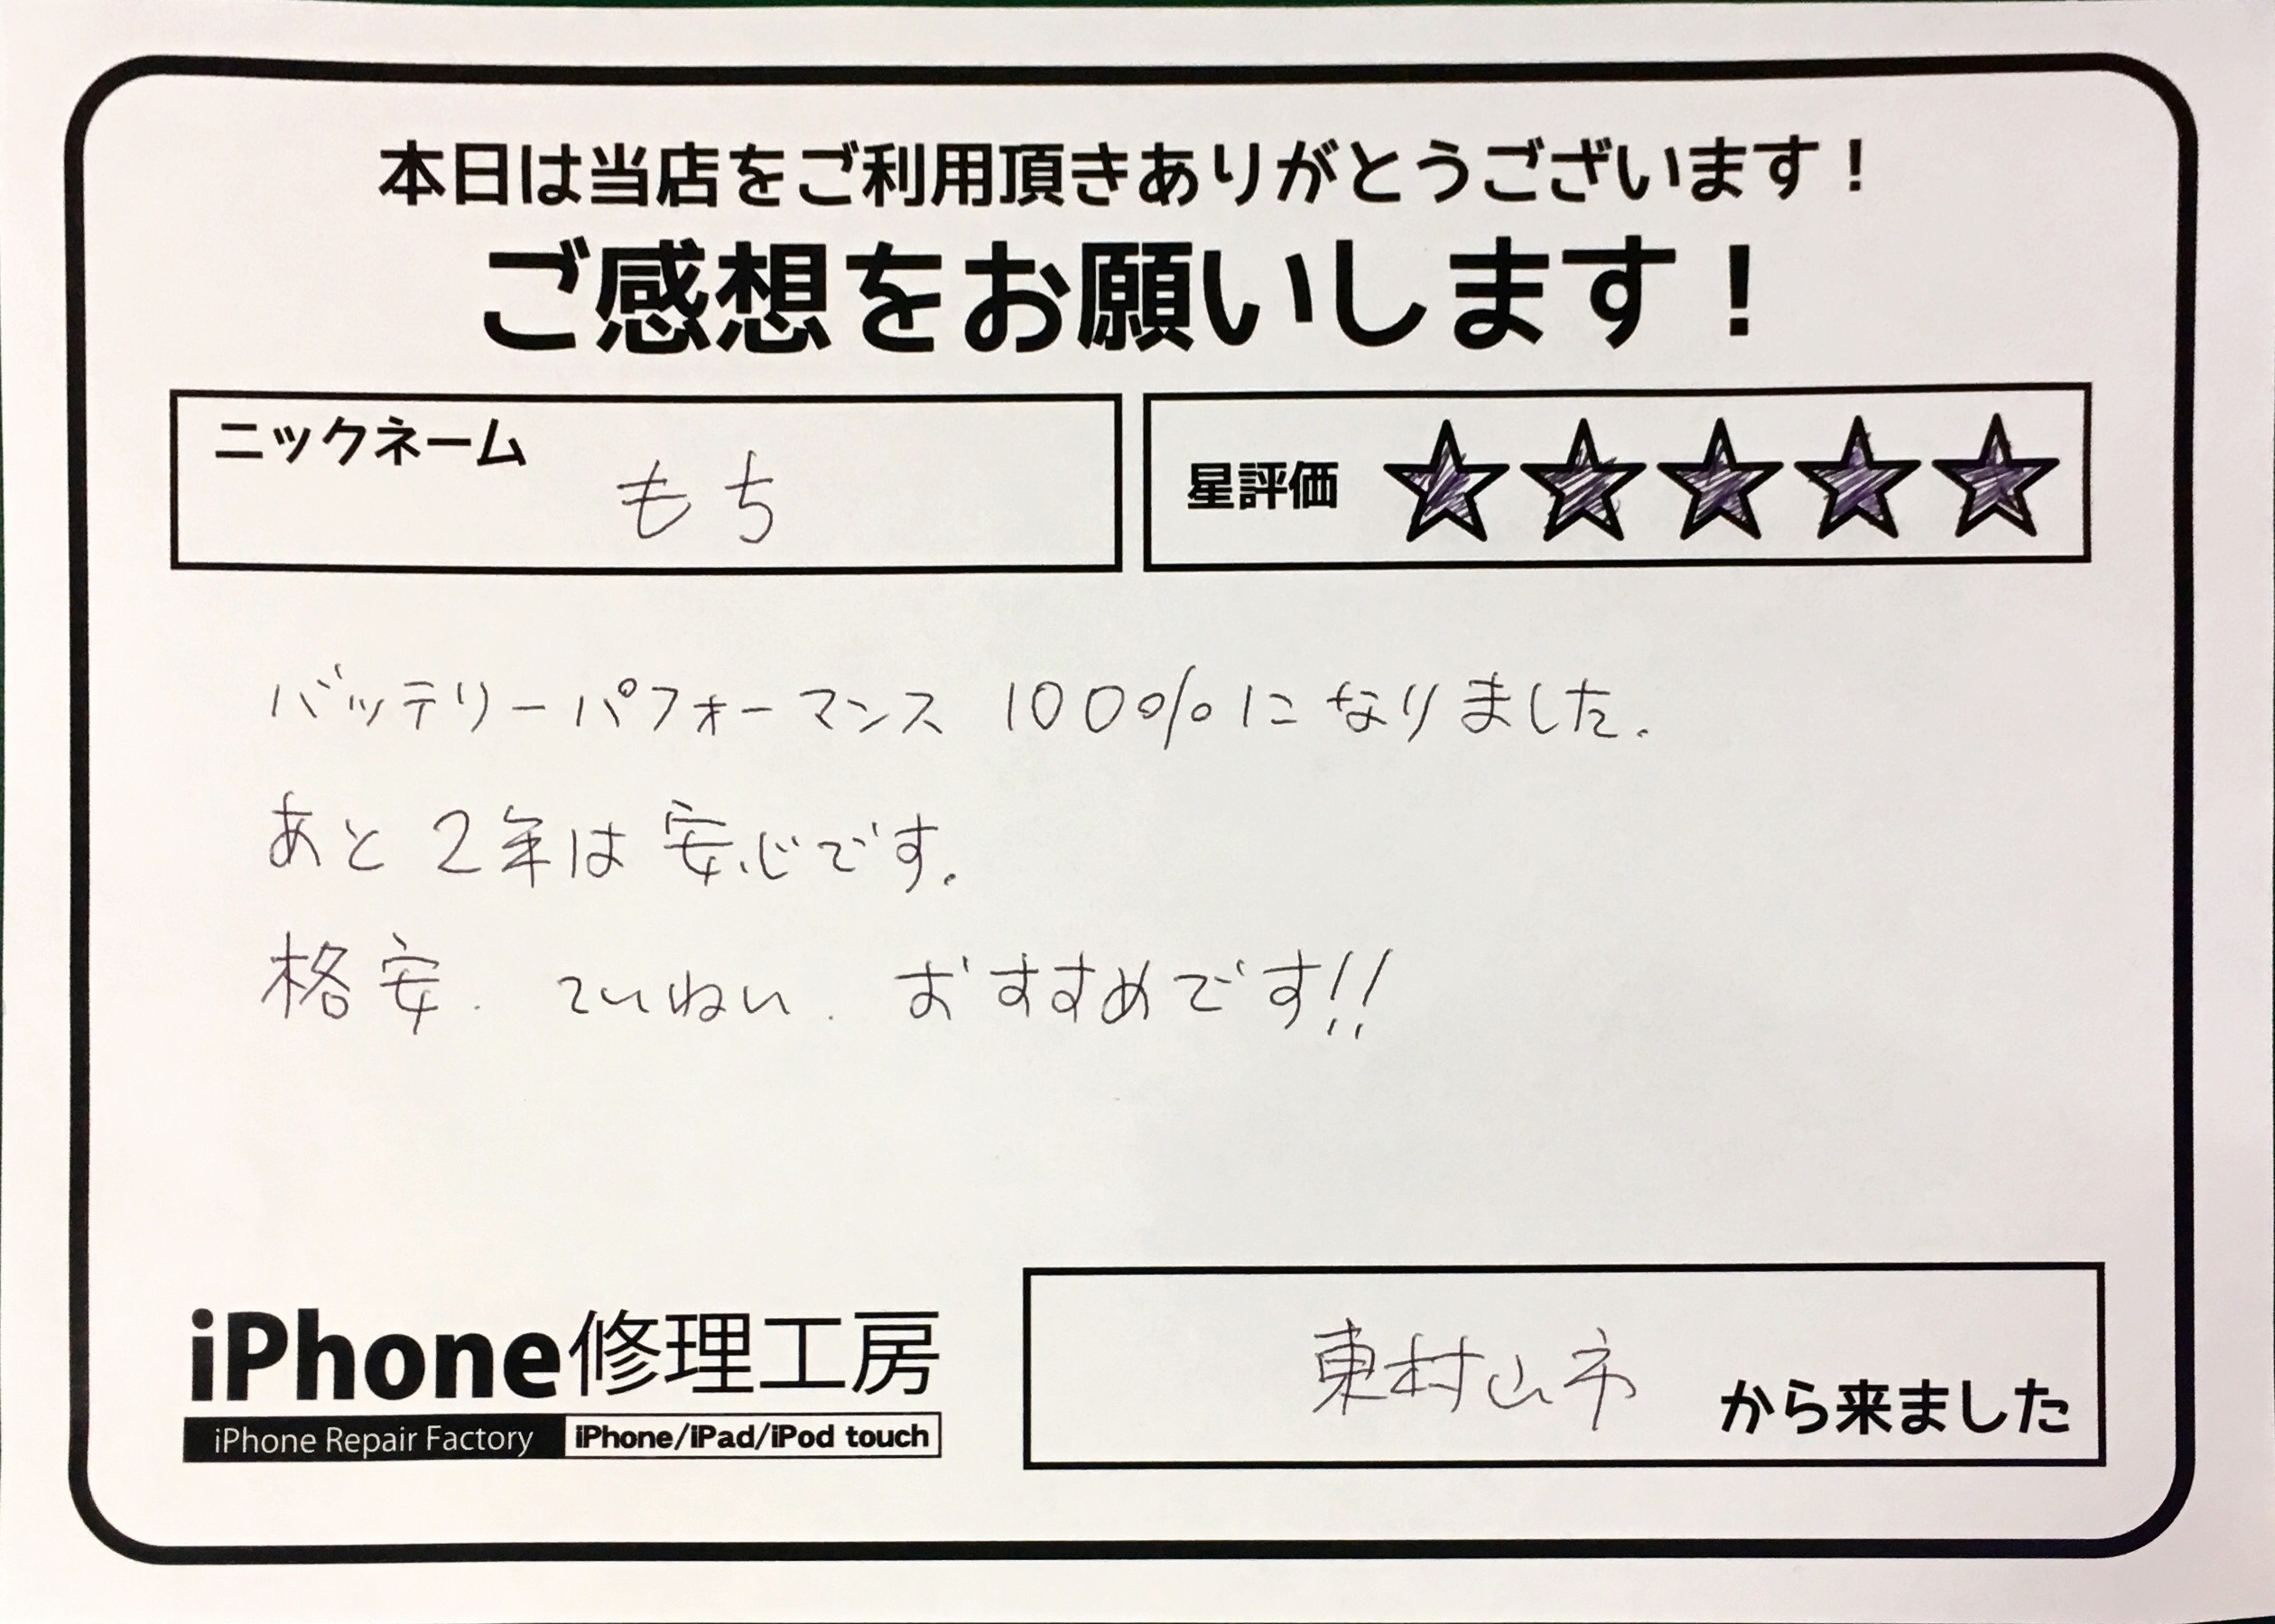 本日は当店をご利用頂きありがとうございます！
ご感想をお願いします！
ニックネーム もち
星評価 ★★★★★
バッテリーパフォーマンス 100%になりました.
あと 2年は 安心です.
格安. ていねい. おすすめです!!
iPhone修理工房
iPhone Repair Factory iPhone/iPad/iPod touch
東村山市 から来ました